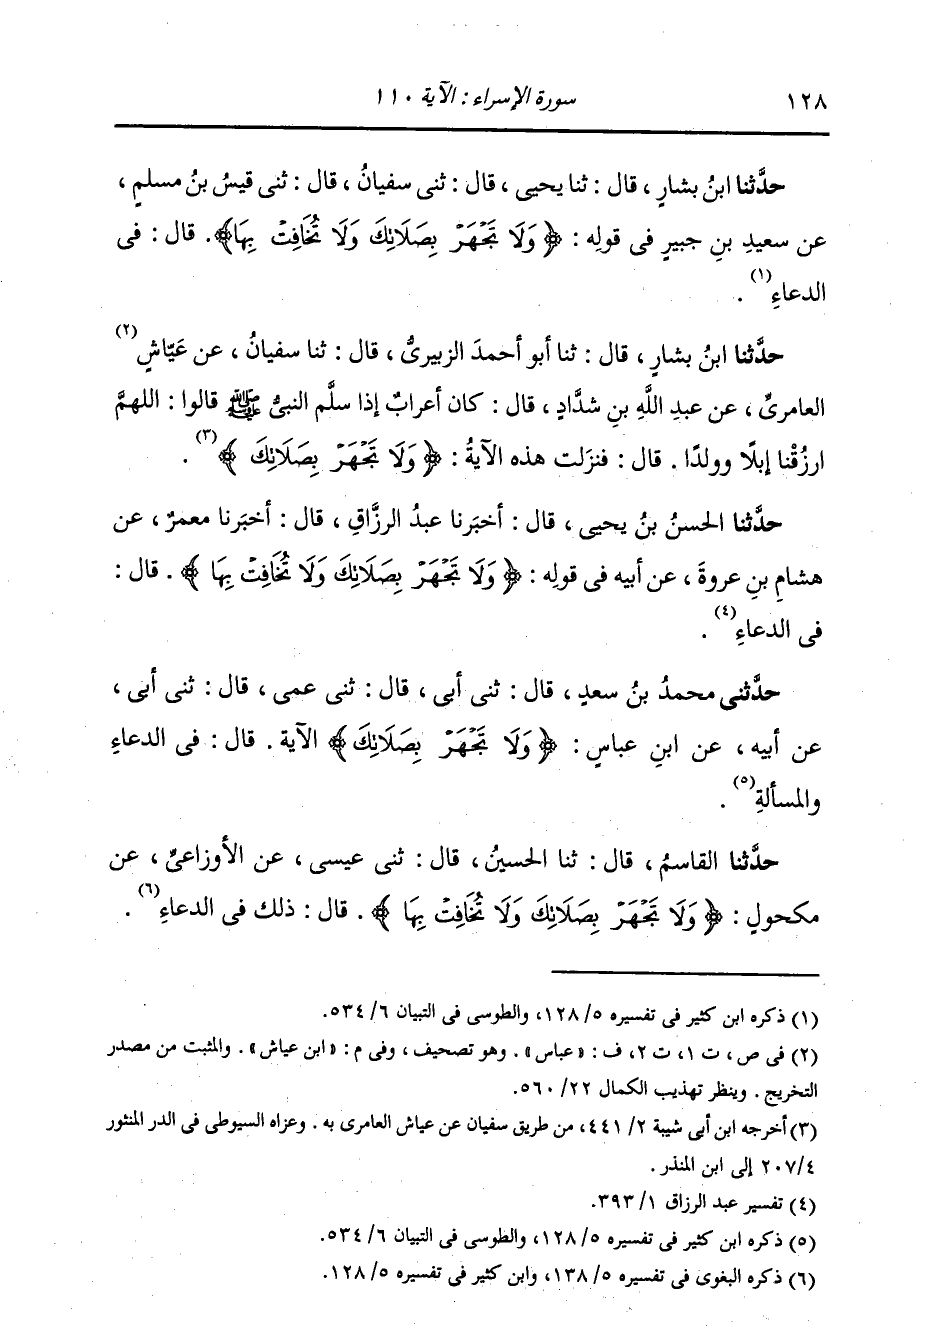 ١٢٨ سورة الإسراء : الآية ١١٠
حدَّثنا ابنُ بشارٍ ، قال : ثنا يحيى ، قال : ثنى سفيانُ ، قال : ثنى قيسُ بنُ مسلمٍ ،
عن سعيدِ بنِ جبيرٍ فى قولِه : ﴿ وَلَا تَجْهَرْ بِصَلَاتِكَ وَلَا تُخَافِتْ بِهَا﴾. قال : فى
الدعاءِ(١) .
حدَّثنا ابنُ بشارٍ ، قال : ثنا أبو أحمدَ الزبيرىُّ ، قال : ثنا سفيانُ ، عن عَيّاشٍ(٢)
العامرىِّ ، عن عبدِ اللَّهِ بنِ شدَّادٍ ، قال : كان أعرابٌ إذا سلَّم النبىُّ ﷺ قالوا : اللهمَّ
ارزُقْنا إبلًا وولدًا . قال : فنزَلت هذه الآيةُ : ﴿ وَلَا تَجْهَرْ بِصَلَاتِكَ ﴾(٣) .
حدَّثنا الحسنُ بنُ يحيى ، قال : أخبَرنا عبدُ الرزَّاقِ ، قال : أخبَرنا معمرٌ ، عن
هشامِ بنِ عروةَ ، عن أبيه فى قولِه : ﴿ وَلَا تَجْهَرْ بِصَلَاتِكَ وَلَا تُخَافِتْ بِهَا ﴾ . قال :
فى الدعاءِ(٤) .
حدَّثنى محمدُ بنُ سعدٍ ، قال : ثنى أبى ، قال : ثنى عمى ، قال : ثنى أبى ،
عن أبيه ، عن ابنِ عباسٍ : ﴿ وَلَا تَجْهَرْ بِصَلَاتِكَ﴾ الآية . قال : فى الدعاءِ
والمسألةِ(٥) .
حدَّثنا القاسمُ ، قال : ثنا الحسينُ ، قال : ثنى عيسى ، عن الأوزاعىِّ ، عن
مكحولٍ : ﴿ وَلَا تَجْهَرْ بِصَلَاتِكَ وَلَا تُخَافِتْ بِهَا ﴾ . قال : ذلك فى الدعاءِ(٦) .
(١) ذكره ابن كثير فى تفسيره ٥/ ١٢٨، والطوسى فى التبيان ٦/ ٥٣٤.
(٢) فى ص ، ت ١، ت ٢، ف : «عباس» . وهو تصحيف ، وفى م : «ابن عياش» . والمثبت من مصدر
التخريج . وينظر تهذيب الكمال ٢٢/ ٥٦٠.
(٣) أخرجه ابن أبى شيبة ٢/ ٤٤١، من طريق سفيان عن عياش العامرى به . وعزاه السيوطى فى الدر المنثور
٤/ ٢٠٧ إلى ابن المنذر .
(٤) تفسير عبد الرزاق ١/ ٣٩٣.
(٥) ذكره ابن كثير فى تفسيره ٥/ ١٢٨، والطوسى فى التبيان ٦/ ٥٣٤.
(٦) ذكره البغوى فى تفسيره ٥/ ١٣٨، وابن كثير فى تفسيره ٥/ ١٢٨.